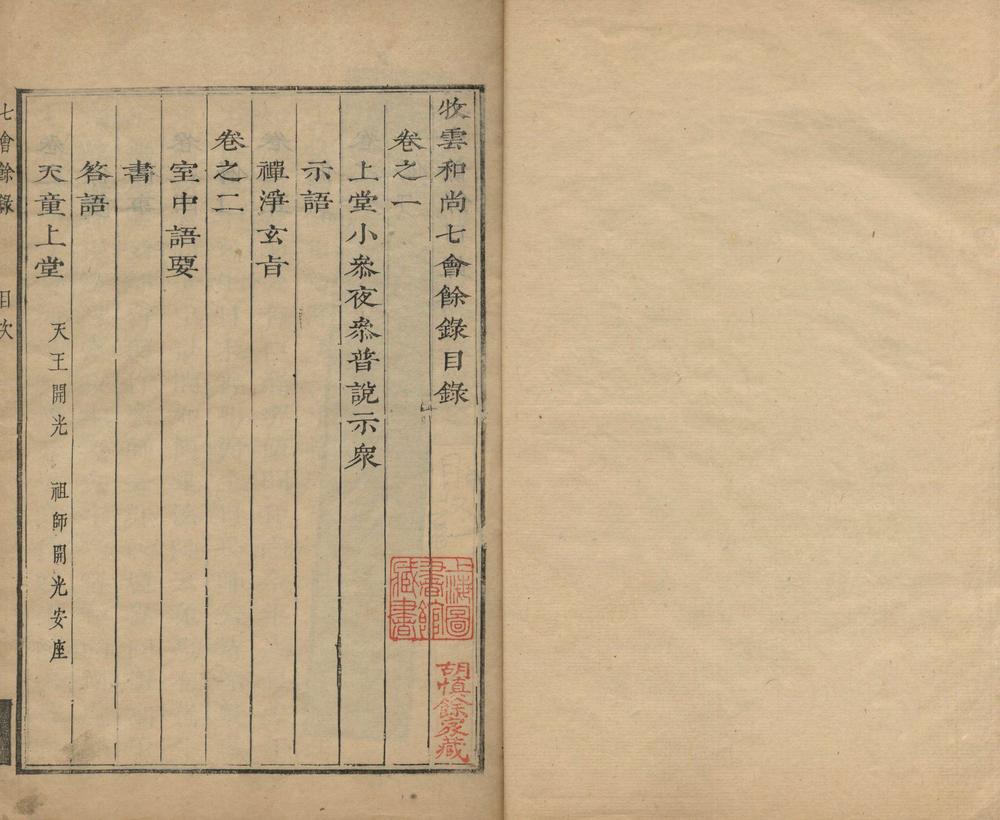 牧雲和尚七會餘錄目錄
卷之一
上堂小叅夜叅普說示衆
示語
禪淨玄旨
卷之二
室中語要
書
答語
天童上堂 天王開光 祖師開光安座
七會餘錄 目次
上海圖書館藏書
胡慎餘家藏